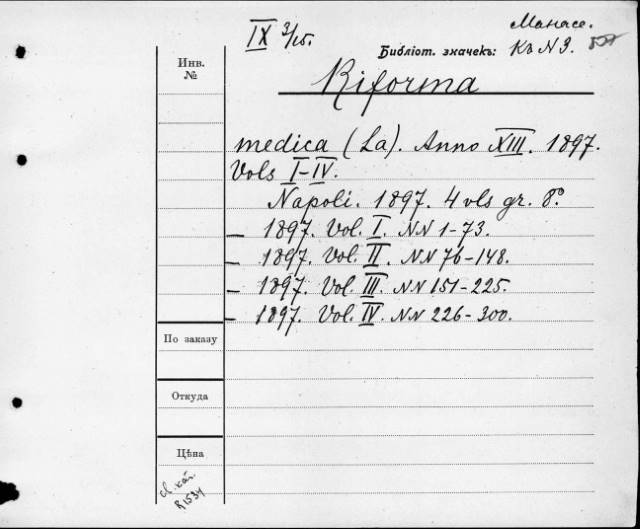 IX 3/15.
Манасе.
Библіот. значекъ: Къ N 3.
Инв.
№
Riforma
medica (La). Anno XIII. 1897.
Vols I-IV.
Napoli. 1897. 4 vls gr. 8º.
— 1897. Vol. I. NN 1-73.
— 1897. Vol. II. NN 76-148.
— 1897. Vol. III. NN 151-225.
— 1897. Vol. IV. NN 226-300.
По заказу
Откуда
Цѣна
R1534